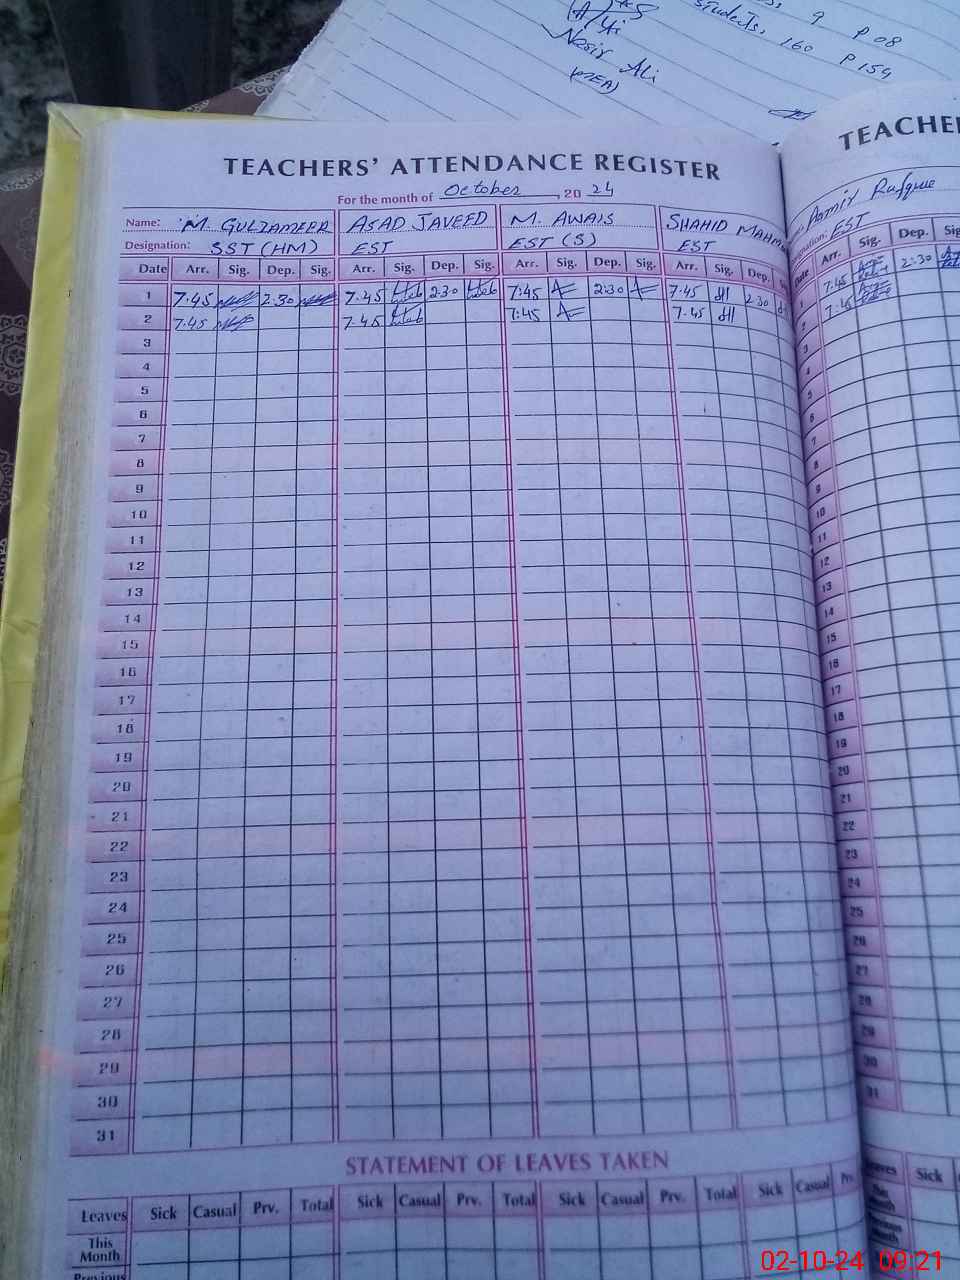 9 P 08
students, 160 P 154
Nasir Ali
(MEA)
TEACHERS' ATTENDANCE REGISTER
For the month of October, 20 24
Name: M. GULZAMEER ASAD JAVEED M. AWAIS SHAHID MAHM
Designation: SST (HM) EST EST (S) EST
Date Arr. Sig. Dep. Sig. Arr. Sig. Dep. Sig. Arr. Sig. Dep. Sig. Arr. Sig. Dep.
1 7:45 2:30 7:45 2:30 7:45 2:30 7:45 2:30
2 7:45 7:45 7:45 7:45
3
4
5
6
7
8
9
10
11
12
13
14
15
16
17
18
19
20
21
22
23
24
25
26
27
28
29
30
31
STATEMENT OF LEAVES TAKEN
Leaves Sick Casual Prv. Total Sick Casual Prv. Total Sick Casual Prv. Total Sick Casual Prv.
This Month
Previous
TEACHE
Aamir Rafique
EST
Date Arr. Sig. Dep. Sig.
1 7:45 2:30
2 7:45
3
4
5
6
7
8
9
10
11
12
13
14
15
16
17
18
19
20
21
22
23
24
25
26
27
28
29
30
31
Leaves Sick
02-10-24 09:21